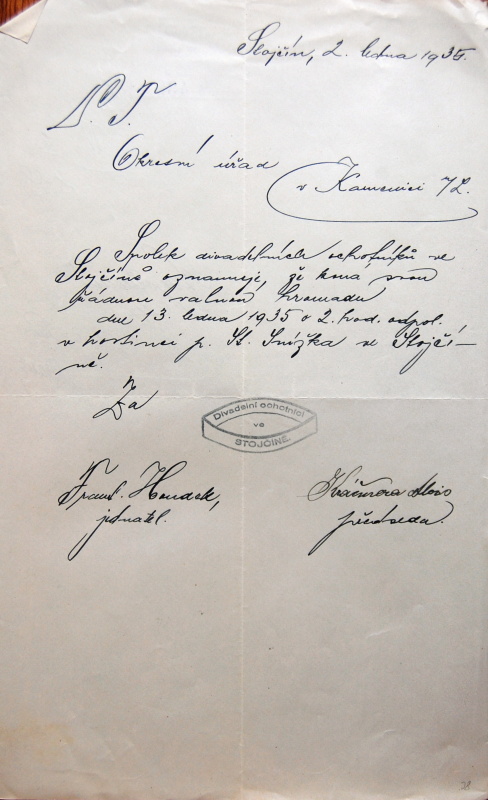 Stojčín, 2. ledna 1935.
P. T.
Okresní úřad
v Kamenici n/L.
Spolek divadelních ochotníků ve
Stojčíně oznamuje, že koná svou
řádnou valnou hromadu
dne 13. ledna 1935 o 2. hod. odpol.
v hostinci p. St. Snížka ve Stojčí-
ně.
Za
Divadelní ochotníci
ve
STOJČÍNĚ.
Frant. Houdek,
jednatel.
Alois
předseda.